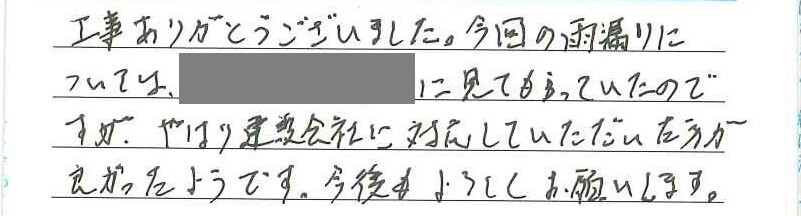 工事ありがとうございました。今回の雨漏りに
ついては、に見てもらっていたので
すが、やはり建設会社に対応していただいた方が
良かったようです。今後もよろしくお願いします。